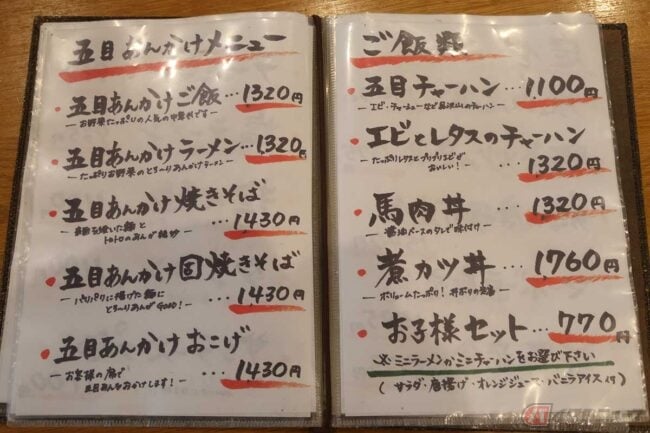 五目あんかけメニュー
・五目あんかけご飯…1320円
ーお野菜たっぷりの人気の中華丼ですー
・五目あんかけラーメン…1320円
ーたっぷりお野菜のとろ〜りあんかけラーメンー
・五目あんかけ焼きそば
ー麺を焼いた麺と
トロトロのあんが絶妙ー
…1430円
・五目あんかけ固焼きそば
ーパリパリに揚げた麺に
とろ〜りあんがGOOD！ー
…1430円
・五目あんかけおこげ
ーお客様の席で
五目あんをおかけします！ー
…1430円
ご飯類
・五目チャーハン…1,100円
ーエビ・チャーシューなど具沢山のチャーハンー
・エビとレタスのチャーハン
ーたっぷりレタスとプリプリエビが
おいしい！ー
…1320円
・馬肉丼…1320円
ー醤油ベースのタレで味付けー
・煮カツ丼…1,760円
ーボリュームたっぷり！
・お子様セット…770円
※ミニラーメンかミニチャーハンをお選び下さい
（サラダ・唐揚げ・オレンジジュース・バニラアイス付）